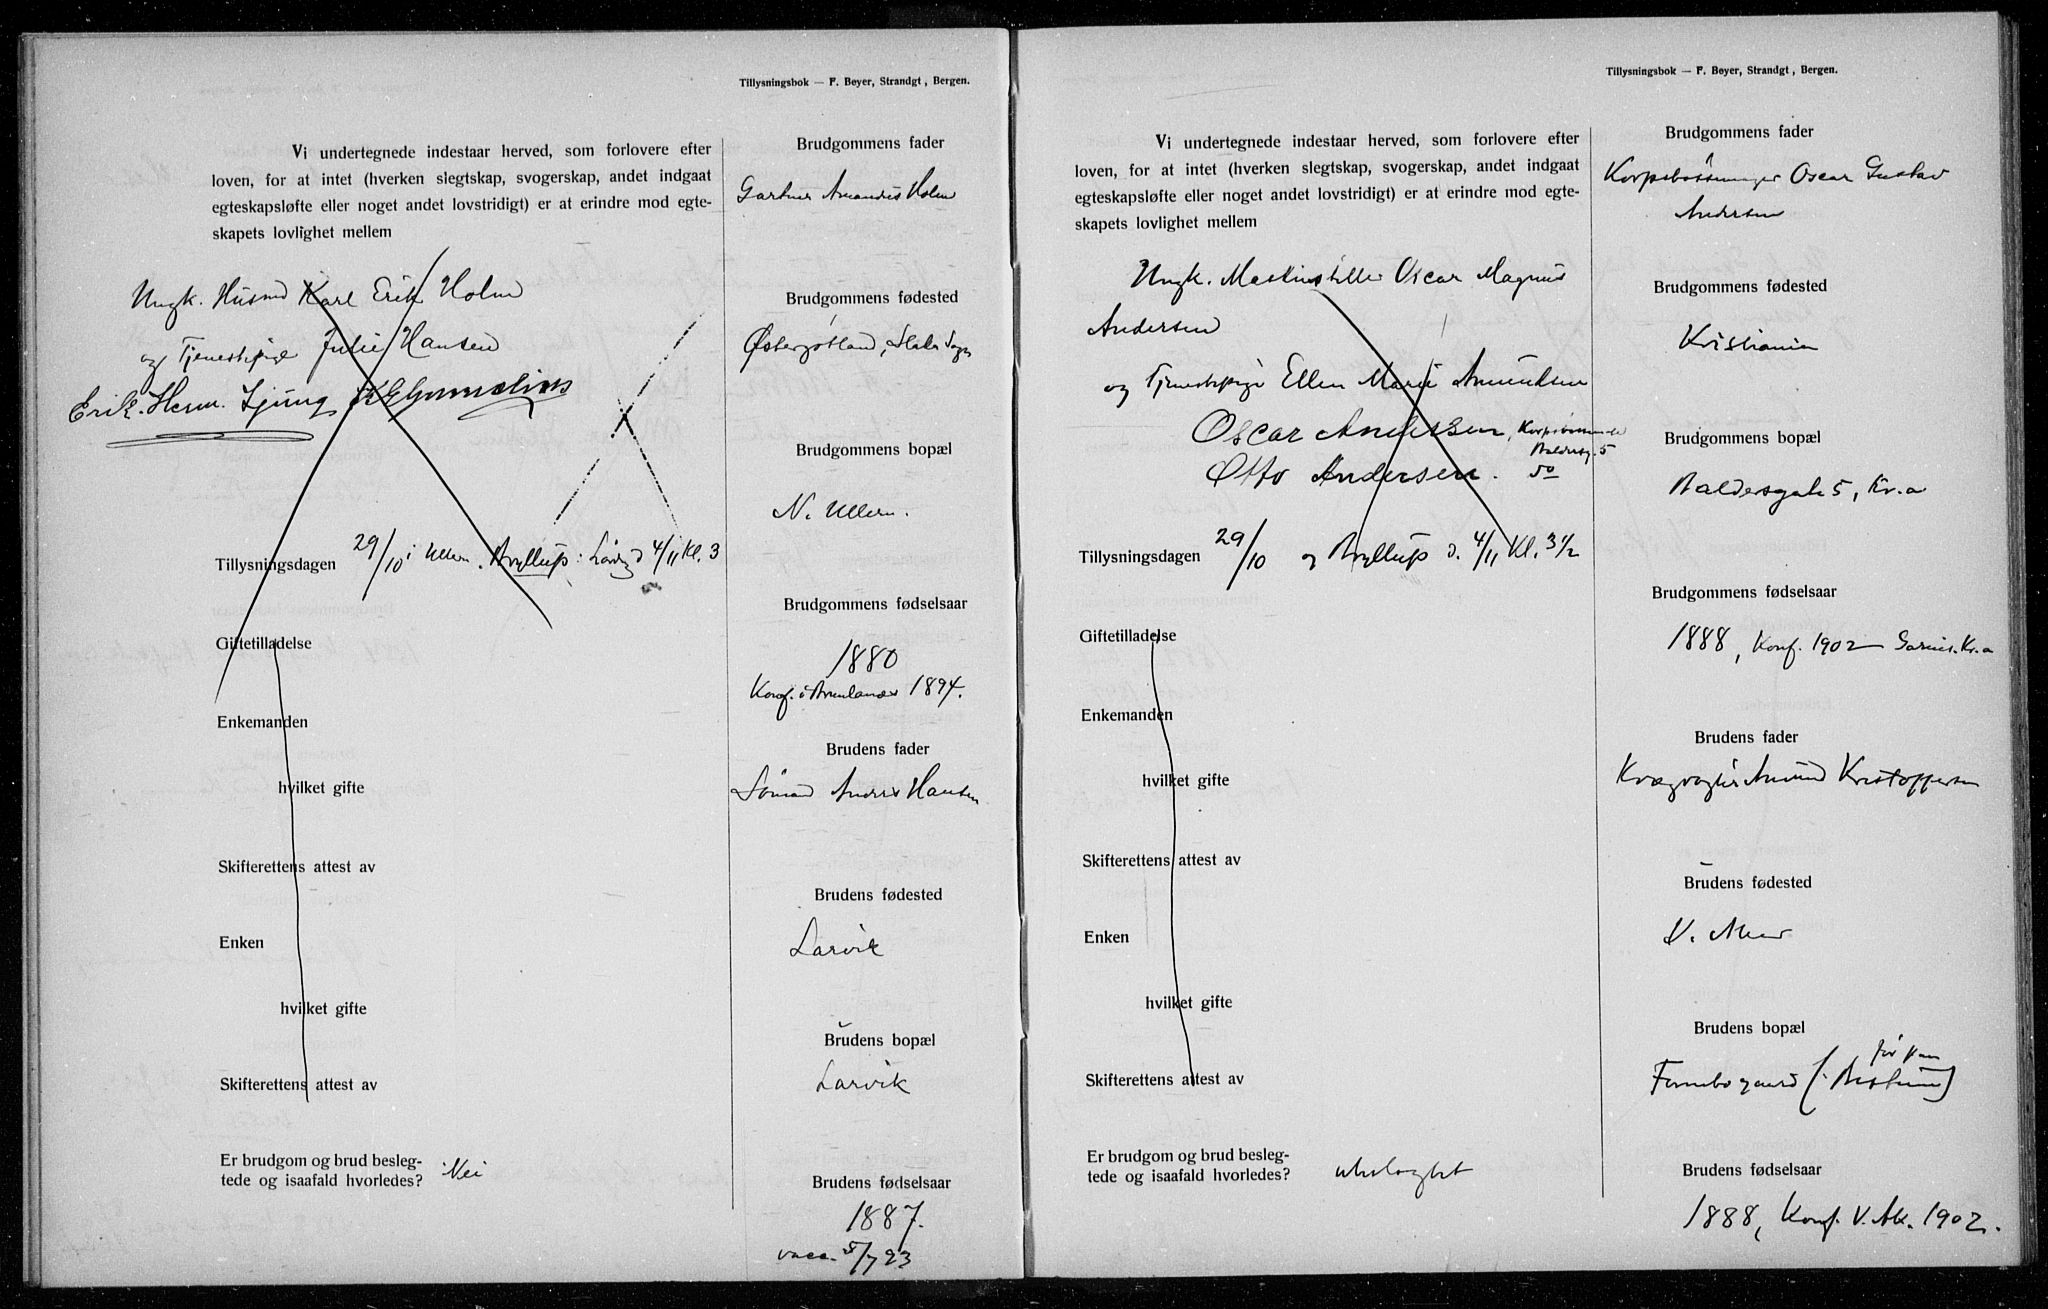 Tillysningsbok — F. Beyer, Strandgt, Bergen.
Vi undertegnede indestaar herved, som forlovere efter
loven, for at intet (hverken slegtskap, svogerskap, andet indgaat
egteskapsløfte eller noget andet lovstridigt) er at erindre mod egte-
skapets lovlighet mellem
Ungk. Husmd Karl Erik Holm
og Tjenestepige Julie Hansen
Erik. Herm. Ljung
Tillysningsdagen 29/10 i Ullern. Bryllup i Larvig d 4/11 Kl. 3
Giftetilladelse
Enkemanden
hvilket gifte
Skifterettens attest av
Enken
hvilket gifte
Skifterettens attest av
Er brudgom og brud besleg-
tede og isaafald hvorledes? Nei
Brudgommens fader
Gartner Amandus Holm
Brudgommens fødested
Østergøtland,
Brudgommens bopæl
N. Ullern.
Brudgommens fødselsaar
1880
Konf. i 1894.
Brudens fader
Sømand Andrs Hansen
Brudens fødested
Larvik
Brudens bopæl
Larvik
Brudens fødselsaar
1887.
vacc. 5/7 93
Tillysningsbok — F. Beyer, Strandgt, Bergen.
Vi undertegnede indestaar herved, som forlovere efter
loven, for at intet (hverken slegtskap, svogerskap, andet indgaat
egteskapsløfte eller noget andet lovstridigt) er at erindre mod egte-
skapets lovlighet mellem
Ungk. Maskinstiller Oscar Magnus
Andersen
og Tjenestepige Ellen Marie Amundsen
Oscar Andersen,
Baldersg. 5
Otto Andersen. do
Tillysningsdagen 29/10 og Bryllup d. 4/11 Kl. 3 1/2
Giftetilladelse
Enkemanden
hvilket gifte
Skifterettens attest av
Enken
hvilket gifte
Skifterettens attest av
Er brudgom og brud besleg-
tede og isaafald hvorledes? ubeslægtet
Brudgommens fader
Korpsbøssemager Oscar Gustav
Andersen
Brudgommens fødested
Kristiania
Brudgommens bopæl
Baldersgate 5, Kr.a
Brudgommens fødselsaar
1888, Konf. 1902 Garnis. Kr.a
Brudens fader
Kvægrøgter Amund Kristoffersen
Brudens fødested
V. Aker
Brudens bopæl
Fornebogaard (i Bestum)
før paa
Brudens fødselsaar
1888, Konf. V. Ak. 1902.